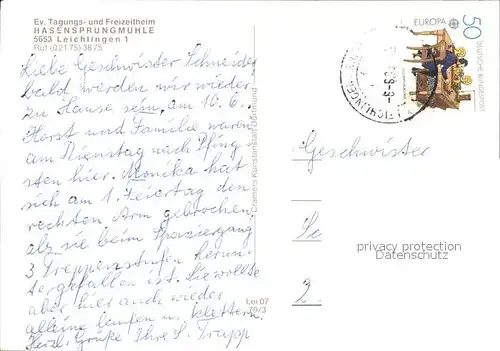 Ev. Tagungs- und Freizeitheim
HASENSPRUNGMÜHLE
5653 Leichlingen 1
Ruf (02175) 3875
Liebe Geschwister Schneider
bald werden wir wieder
zu Hause sein, am 10.6.
Horst und Familie waren
am Dienstag nach Pfing
sten hier. Monika hat
sich am 1. Feiertag den
rechten Arm gebrochen,
als sie beim Spaziergang
3 Treppenstufen herun
tergefallen ist. Sie wollte
aber hier auch wieder
alleine laufen u. klettern.
Herzl. Grüße Ihre S. Trapp
Cramers Kunstanstalt Dortmund
Lei 07
79/3
EUROPA
50
DEUTSCHE BUNDESPOST
LEICHLINGEN
Geschwister
Sc
2.
privacy protection
Datenschutz